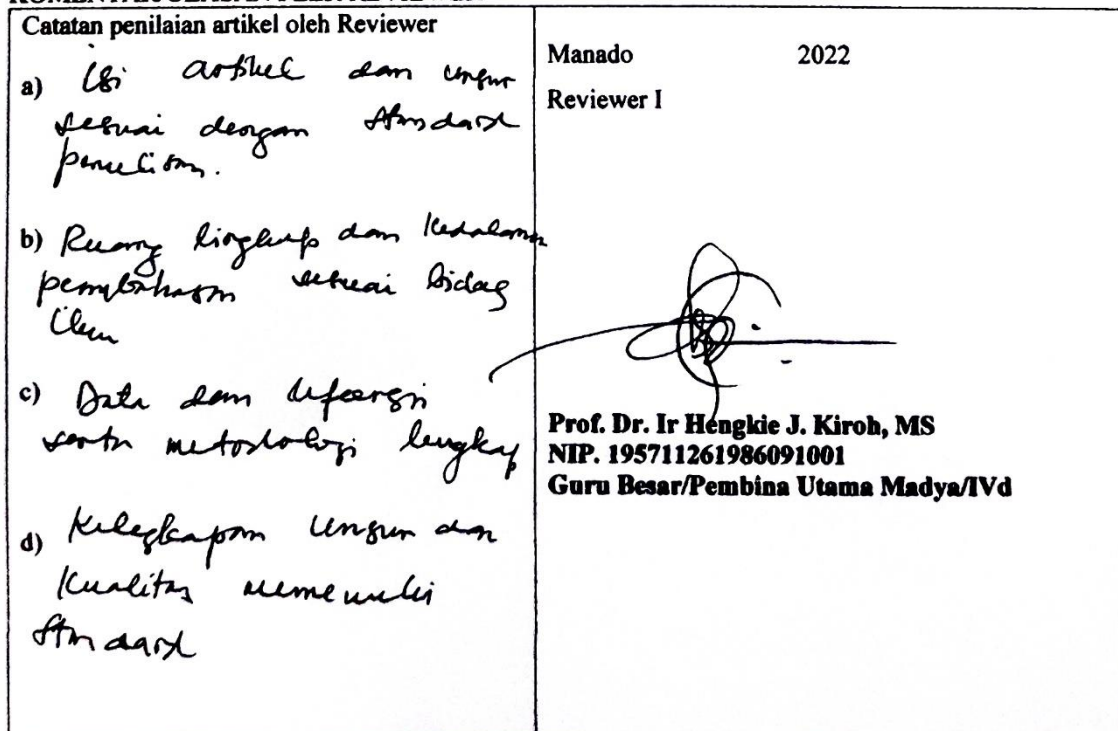 Catatan penilaian artikel oleh Reviewer
a) Isi artikel dan unsur
sesuai dengan Standard
penelitian.
b) Ruang lingkup dan kedalaman
pembahasan sesuai bidag
ilmu
c) Data dan
serta metodologi lengkap
d) Kelegkapan unsur dan
Kualitas memenuhi
Standard
Manado 2022
Reviewer I
Prof. Dr. Ir Hengkie J. Kiroh, MS
NIP. 195711261986091001
Guru Besar/Pembina Utama Madya/IVd